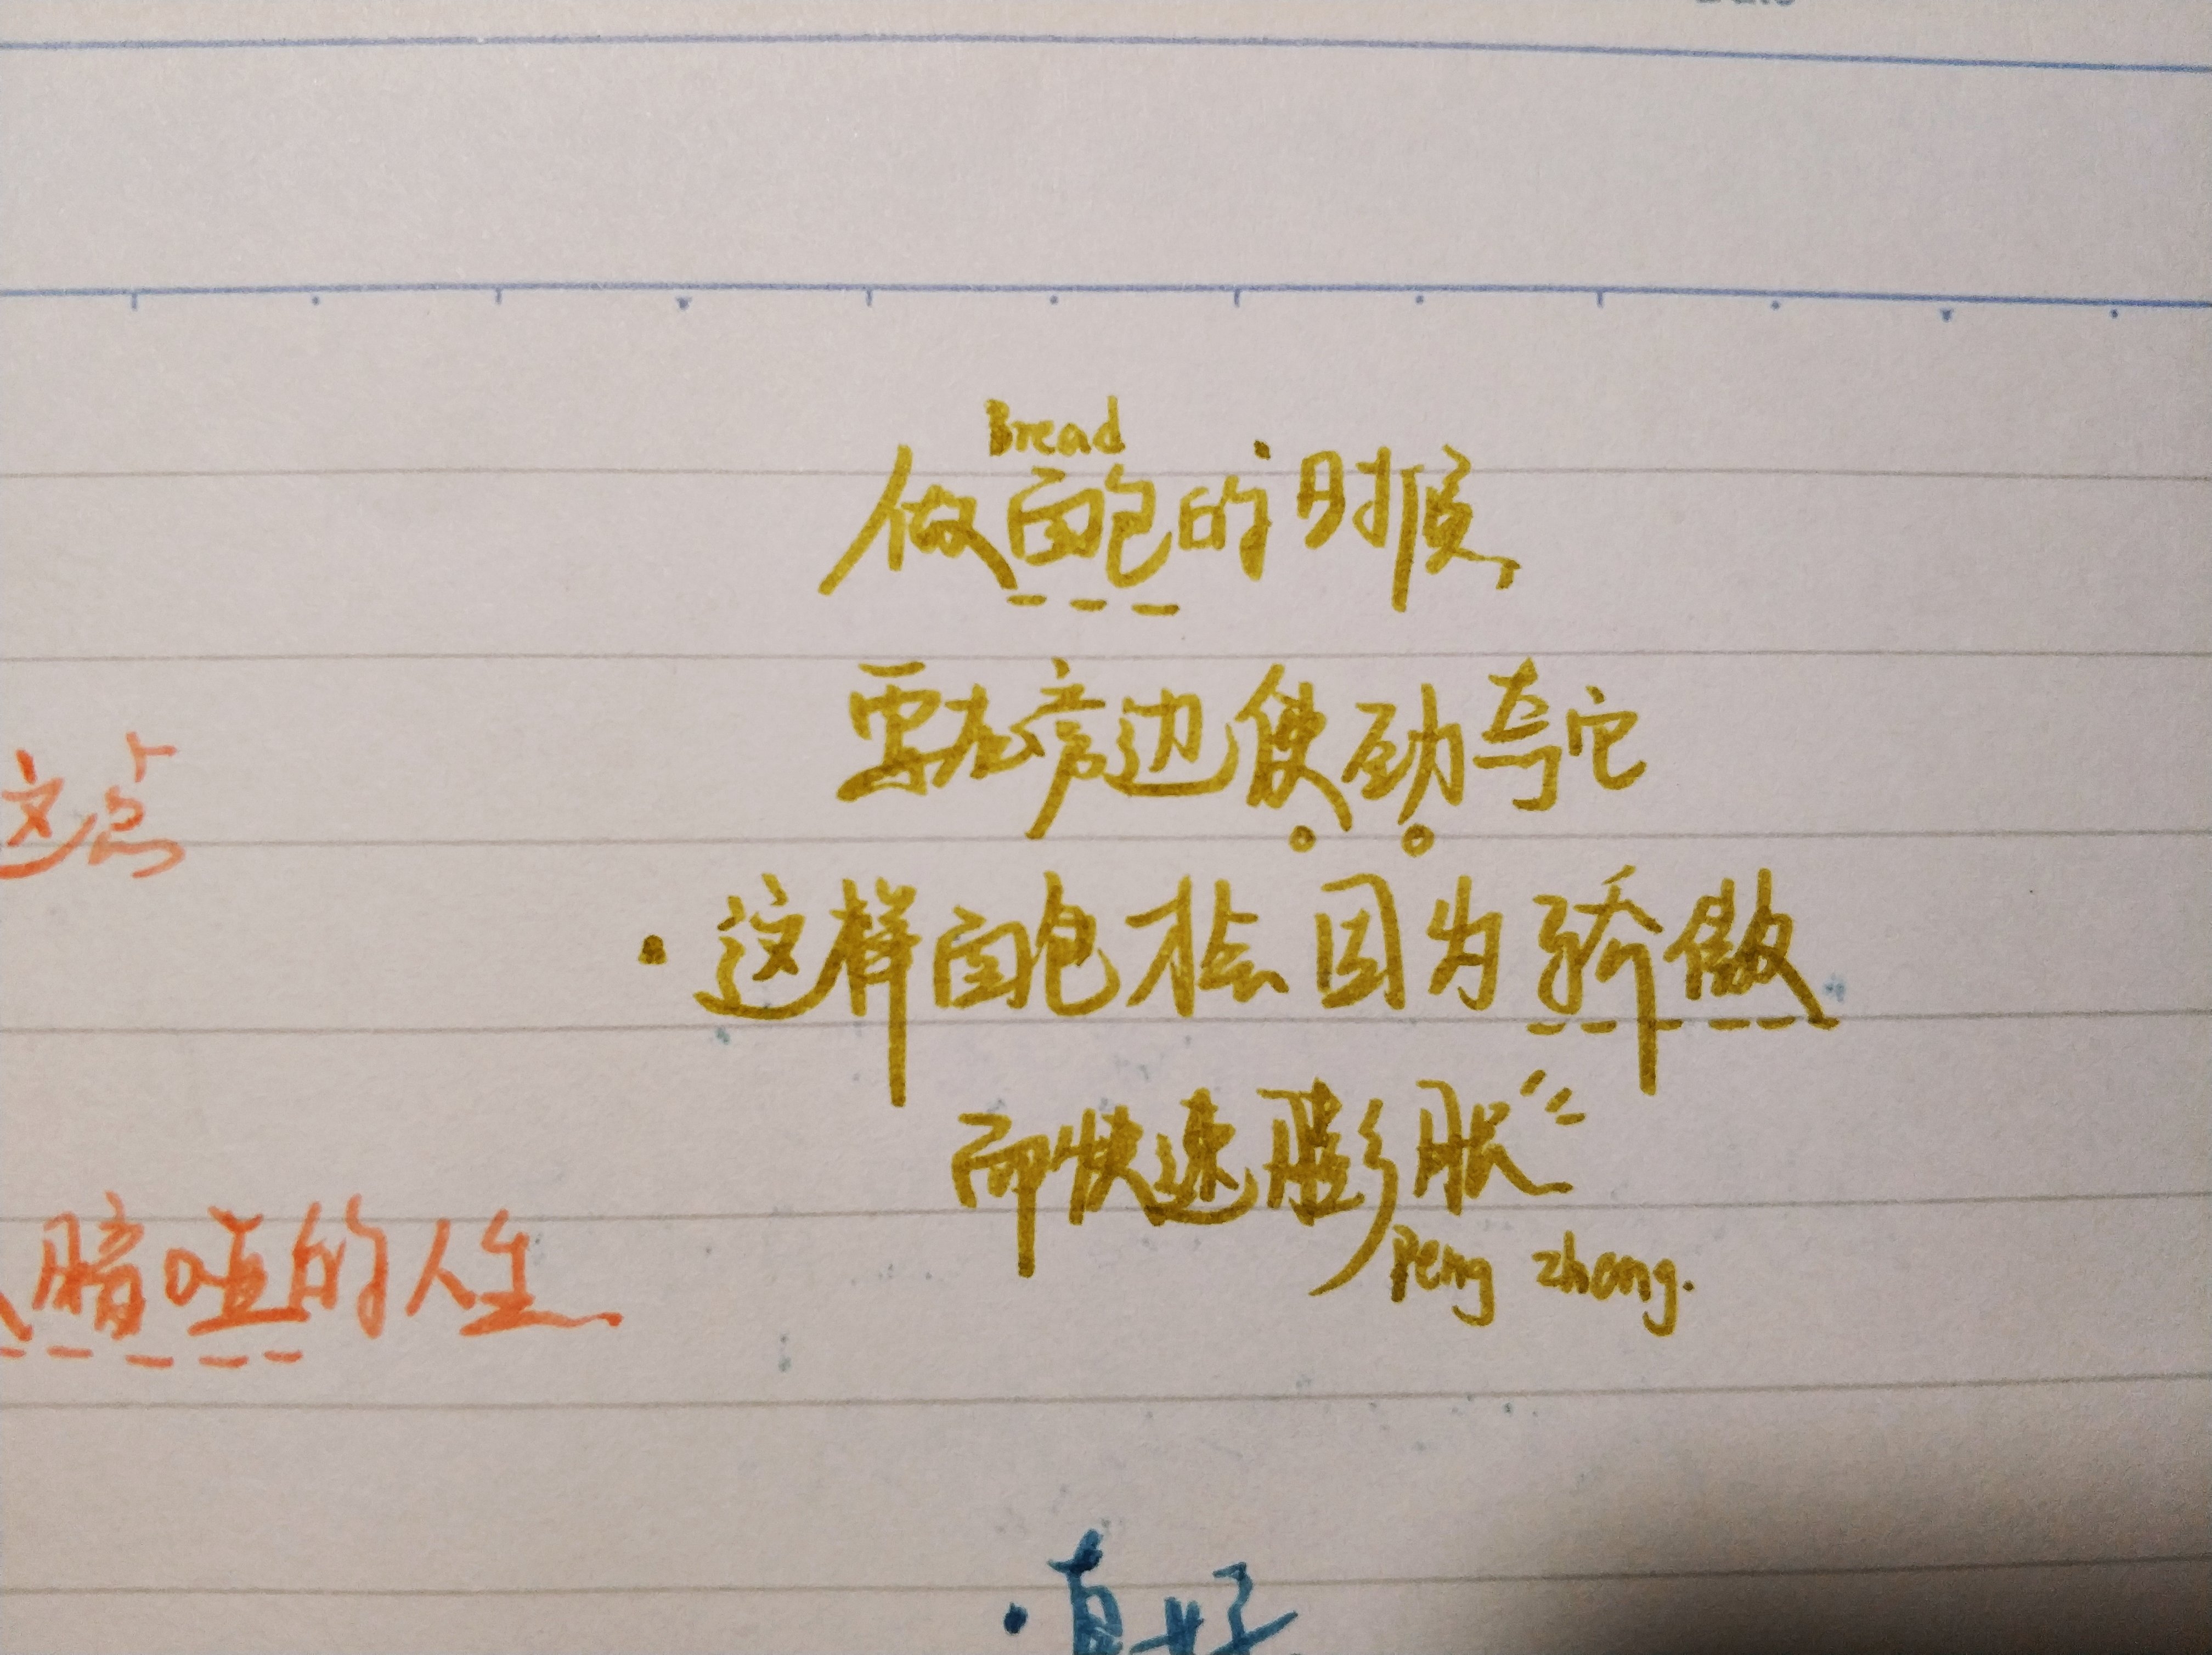 Bread
做面包的时候
要在旁边使劲夸它
·这样面包才会因为骄傲
而快速膨胀
Peng zhang.
这点
暗哑的人生
·真好